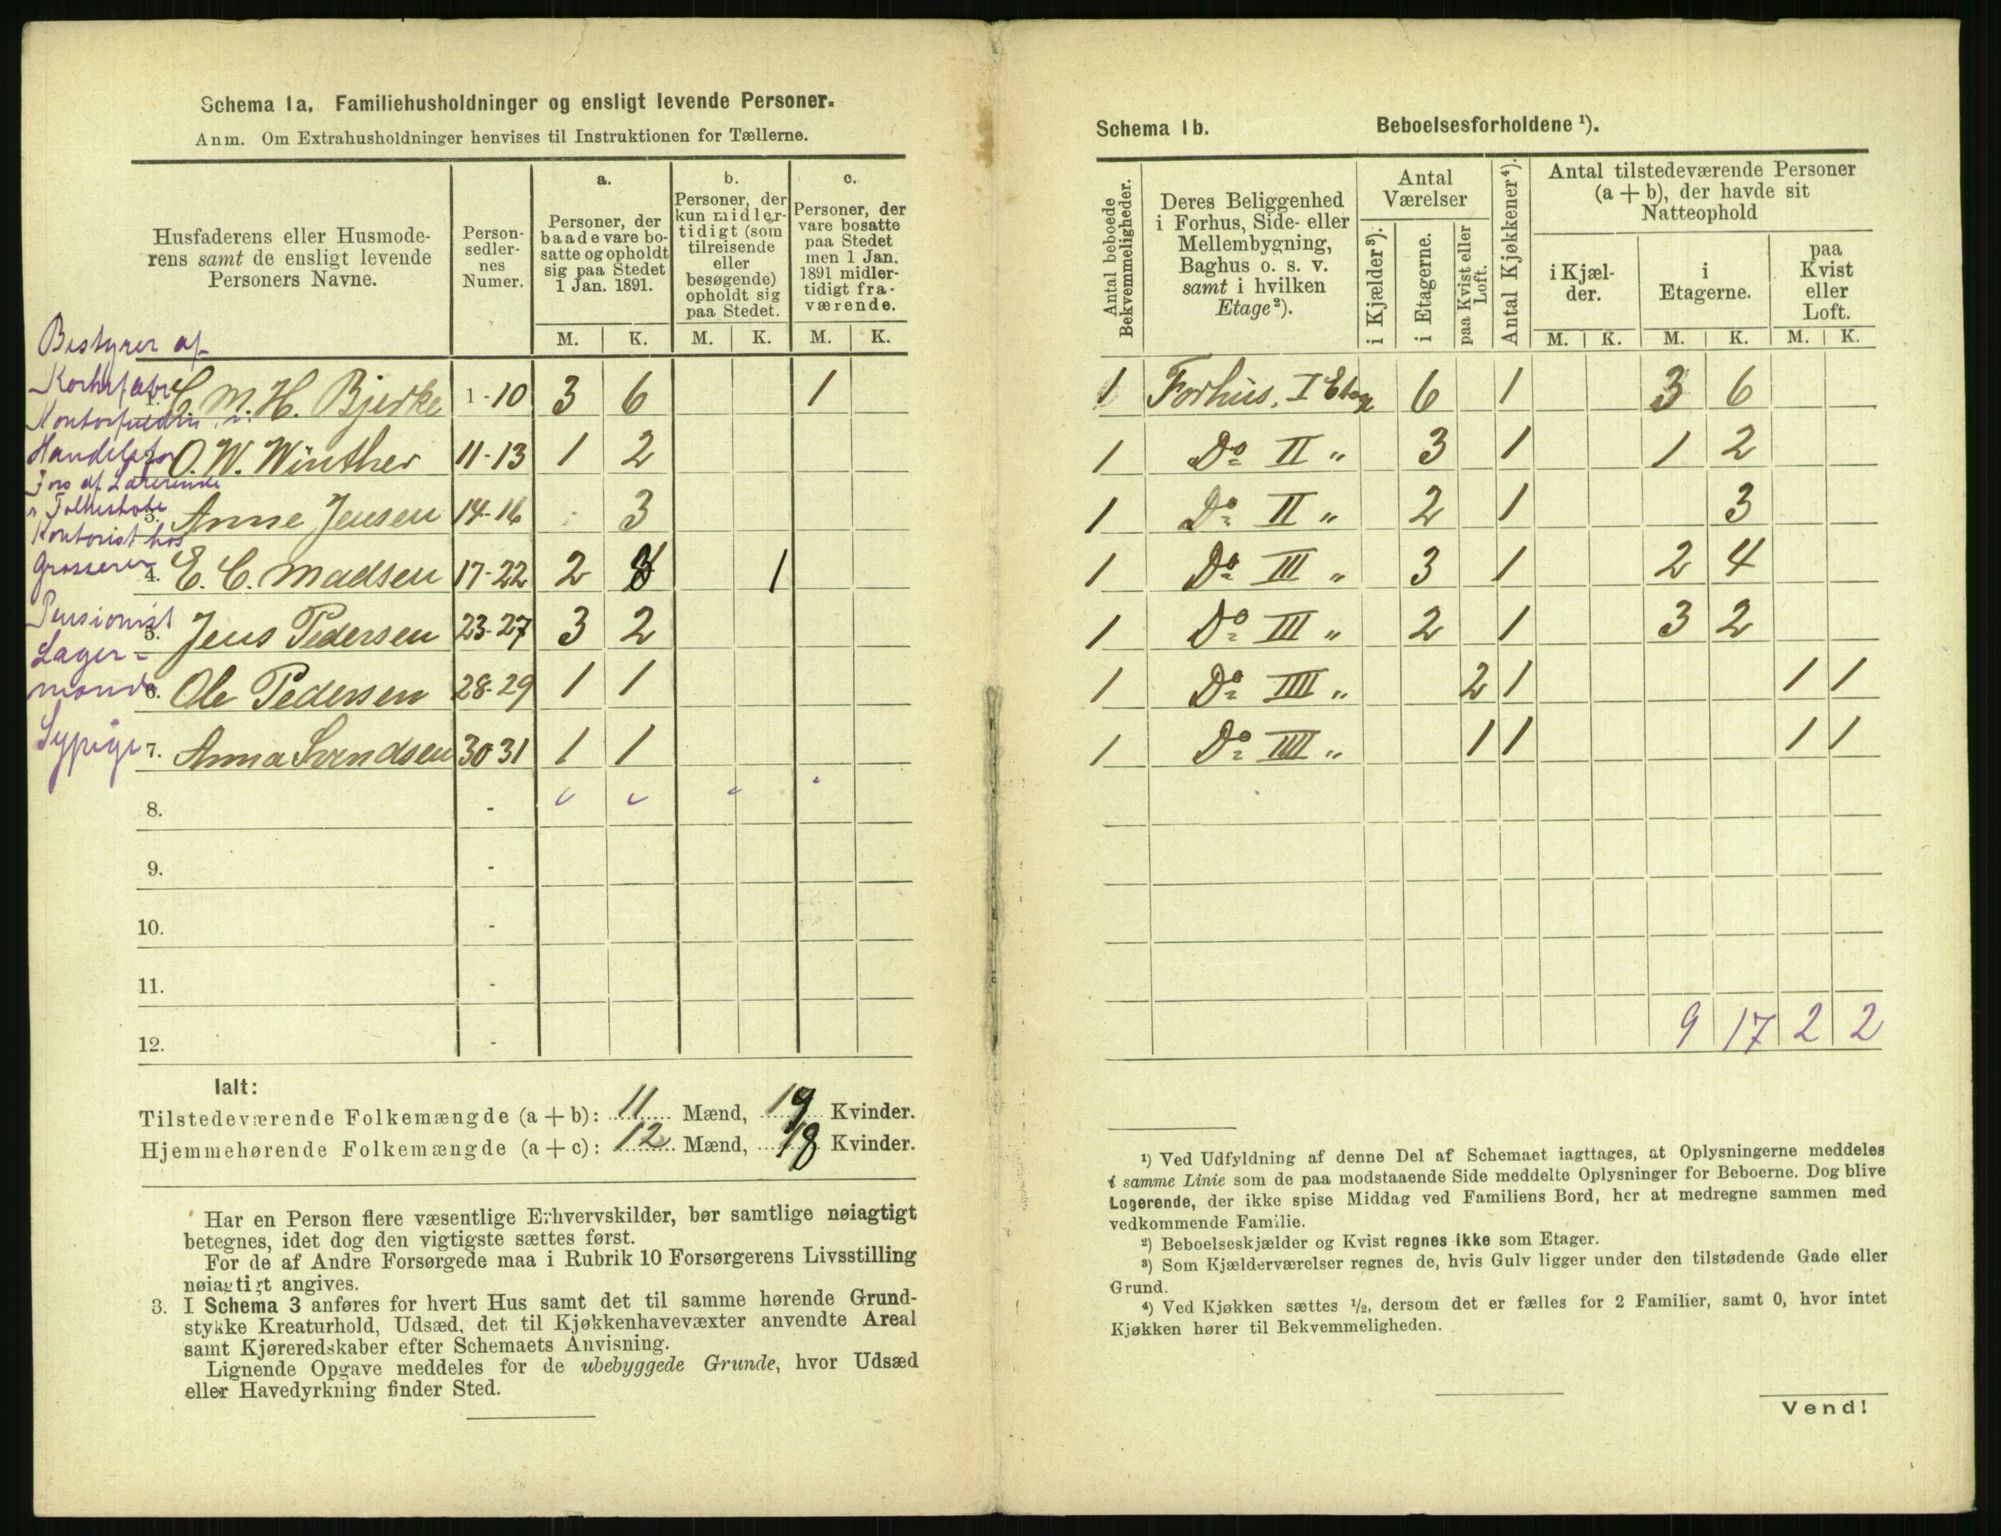 Schema 1a. Familiehusholdninger og ensligt levende Personer.
Anm. Om Extrahusholdninger henvises til Instruktionen for Tællerne.
Husfaderens eller Husmode-
rens samt de ensligt levende
Personers Navne.
Person-
sedler-
nes
Numer.
a.
Personer, der
baade vare bo-
satte og opholdt
sig paa Stedet
1 Jan. 1891.
b.
Personer, der
kun midler-
tidigt (som
tilreisende
eller
besøgende)
opholdt sig
paa Stedet.
c.
Personer, der
vare bosatte
paa Stedet
men 1 Jan.
1891 midler-
tidigt fra-
værende.
M. K. M. K. M. K.
Bestyrer af
1. C. M. H. Bjerke 1-10 3 6 1
Handelsfor O. W. Winther 11-13 1 2
3. Anne Jensen 14-16 3
Kontorist hos
Grosserer
4. E. C. Madsen 17-22 2 1
Pensionist
5. Jens Pedersen 23-27 3 2
Lager-
mand
6. Ole Pedersen 28-29 1 1
Sypige 7. Anna Svendsen 30 31 1 1
8. -
9. -
10. -
11. -
12. -
Ialt:
Tilstedeværende Folkemængde (a + b): 11 Mænd, 19 Kvinder.
Hjemmehørende Folkemængde (a + c): 12 Mænd, 18 Kvinder.
Har en Person flere væsentlige Erhvervskilder, bør samtlige nøiagtigt
betegnes, idet dog den vigtigste sættes først.
For de af Andre Forsørgede maa i Rubrik 10 Forsørgerens Livsstilling
nøiagtigt angives.
3. I Schema 3 anføres for hvert Hus samt det til samme hørende Grund-
stykke Kreaturhold, Udsæd, det til Kjøkkenhavevæxter anvendte Areal
samt Kjøreredskaber efter Schemaets Anvisning.
Lignende Opgave meddeles for de ubebyggede Grunde, hvor Udsæd
eller Havedyrkning finder Sted.
Schema 1b. Beboelsesforholdene ¹).
Antal beboede
Bekvemmeligheder.
Deres Beliggenhed
i Forhus, Side- eller
Mellembygning,
Baghus o. s. v.
samt i hvilken
Etage²).
Antal
Værelser
i Kjælder³).
i Etagerne.
paa Kvist eller
Loft.
Antal Kjøkkener⁴).
Antal tilstedeværende Personer
(a + b), der havde sit
Natteophold
i Kjæl-
der.
i
Etagerne.
paa
Kvist
eller
Loft.
M. K. M. K. M. K.
1 Forhus, I Etage 6 1 3 6
1 Do II " 3 1 1 2
1 Do II " 2 1 3
1 Do III " 3 1 2 4
1 Do III " 2 1 3 2
1 Do IIII " 2 1 1 1
1 Do IIII " 1 1 1 1
9 17 2 2
¹) Ved Udfyldning af denne Del af Schemaet iagttages, at Oplysningerne meddeles
i samme Linie som de paa modstaaende Side meddelte Oplysninger for Beboerne. Dog blive
Logerende, der ikke spise Middag ved Familiens Bord, her at medregne sammen med
vedkommende Familie.
²) Beboelseskjælder og Kvist regnes ikke som Etager.
³) Som Kjælderværelser regnes de, hvis Gulv ligger under den tilstødende Gade eller
Grund.
⁴) Ved Kjøkken sættes ½, dersom det er fælles for 2 Familier, samt 0, hvor intet
Kjøkken hører til Bekvemmeligheden.
Vend!